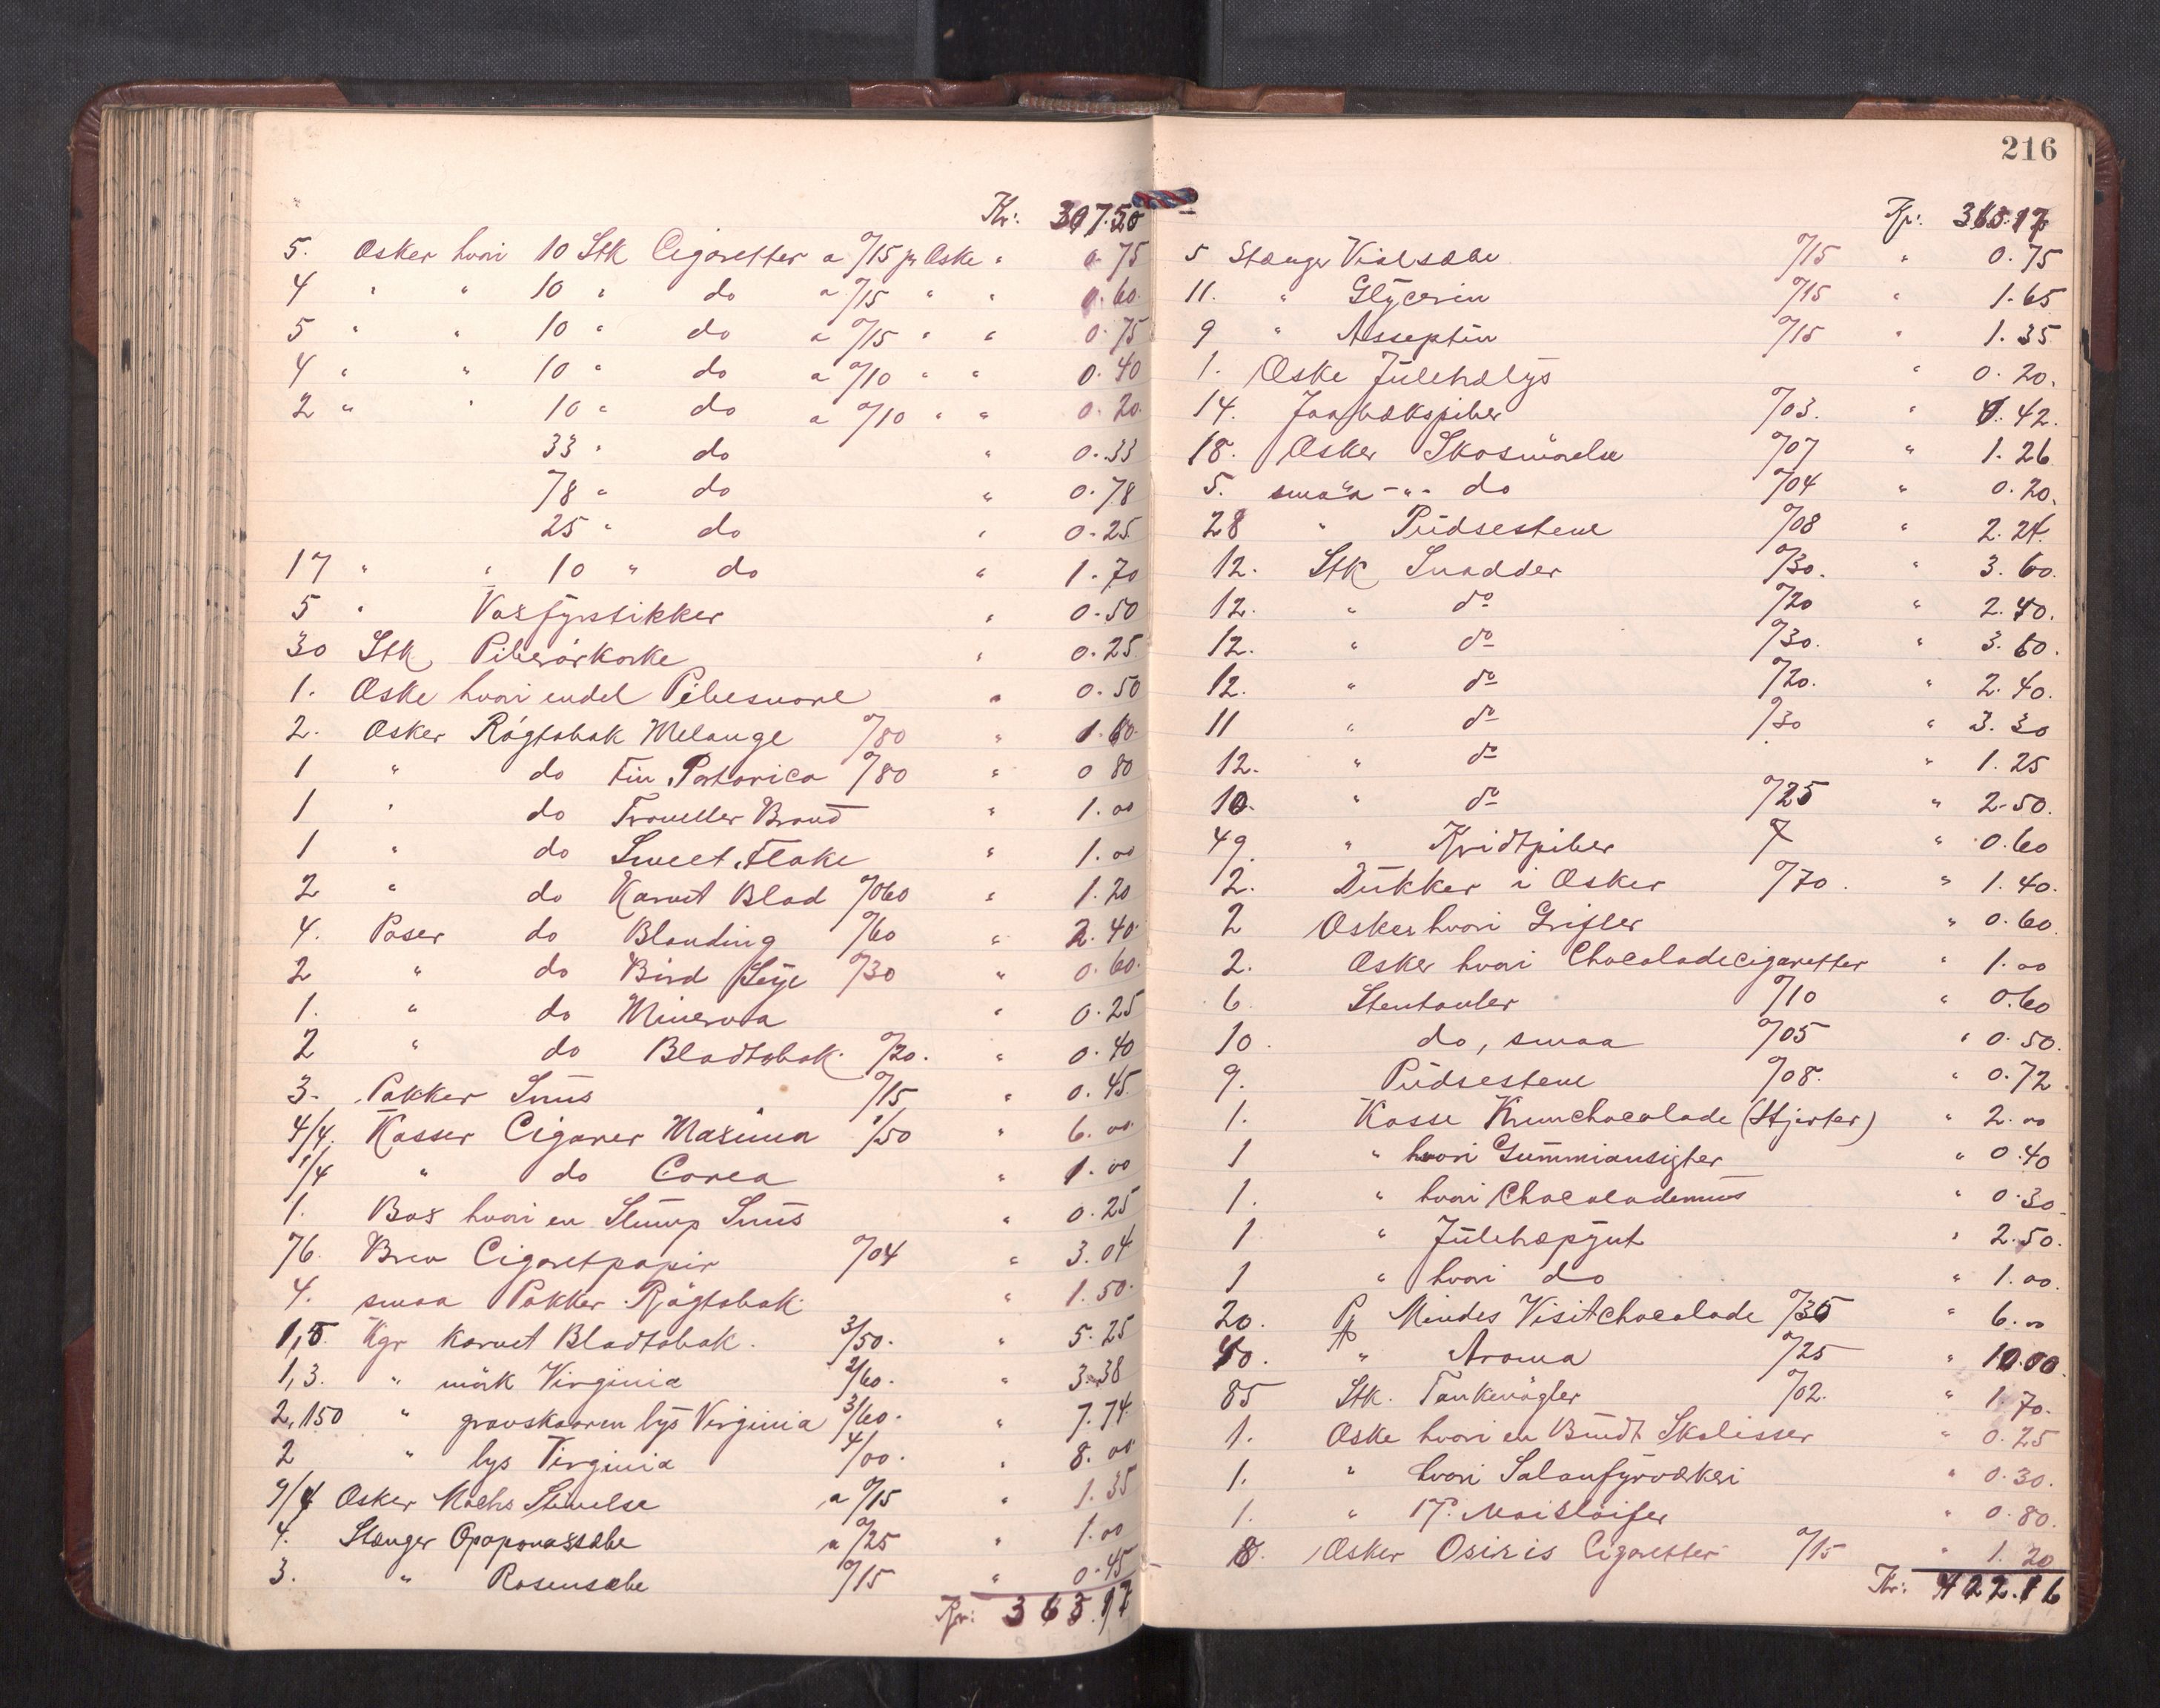 Kr: 307.50
5. Æsker hvori 10 Stk Cigaretter a 0/15 pr Æske " 0.75
4 " " 10 " do a 0/15 " " 0.60
5 " " 10 " do a 0/15 " " 0.75
4 " " 10 " do a 0/10 " " 0.40
2 " " 10 " do a 0/10 " " 0.20
33 " do " 0.33
78 " do " 0.78
25 " do " 0.25
17 " " 10 " do " 1.70
5 " Voxfyrstikker " 0.50
30 Stk Piberörkorke " 0.25
1. Æske hvori endel Pibesnore " 0.50
2. Æsker Rögtobak Melange 0/80 " 1.60
1 " do Fin Portorico 0/80 " 0 80
1 " do Traveller Brand " 1.00
1 " do Sweet Flake " 1.00
2 " do Karvet Blad 0/060 " 1.20
4. Poser do Blanding 0/60 " 2.40
2 " do Bird Eye 0/30 " 0.60
1. " do Minerva " 0.25
2 " do Bladtobak 0/20. " 0.40
3. Pakker Snus 0/15 " 0.45
4/4. Kasser Cigarer Maxima 1/50 " 6.00
1/4 " do Corea " 1.00
1. Box hvori en Slump Snus " 0.25
76. Brev Cigaretpapir 0/04 " 3.04
4. smaa Pakker Rögtobak " 1.50
1,5 Kgr Karvet Bladtobak. 3/50. " 5.25
1,3. " mörk Virginia 2/60. " 3.38
2,150 " grovskaaren lys Virginia 3/60. " 7.74
2 " lys Virginia 4/00. " 8.00
9/4 Æsker Machs Stivelse a 0/15 " 1.35
4. Stænger Opoponaxsæbe a 0/25 " 1.00
3. " Rosensæbe 0/15 " 0.45
Kr: 365.17
216
Kr: 365.17
5 Stænger Violsæbe 0/15 " 0.75
11. " Glycerin 0/15 " 1.65
9 " Asseptin 0/15 " 1.35
1. Æske Juletrælys " 0.20.
14. Jaabækspiber 0/03. " 0.42.
18. Æsker Skosmörelse 0/07 " 1.26
5. smaa -"- do 0/04 " 0.20.
28 " Pudsestene 0/08 " 2.24.
12. Stk Snadder 0/30. " 3.60.
12. " do 0/20 " 2.40.
12. " do 0/30. " 3.60.
12. " do 0/20. " 2.40.
11 " do 0/30 " 3.30
12. " do " 1.25
10. " do 0/25 " 2.50.
49. " Kridtpiber " 0.60
2. Dukker i Æsker 0/70. " 1.40.
2 Æsker hvori Grifler " 0.60.
2. Æsker hvori Chocoladecigaretter " 1.00
6. Stentavler 0/10 " 0.60
10. do, smaa 0/05 " 0.50.
9. Pudsestene 0/08. " 0.72.
1. Kasse Krumchocolade (Hjerter) " 2.00
1 " hvori Gummiansigter " 0.40
1. " hvori Chocolademus " 0.30
1 " Juletræpynt " 2.50.
1 " hvori do " 1.00.
20. Pk Mindes Visitchocolade 0/30 " 6.00
40. " Aroma 0/25 " 10.00
85 Stk. Tankenögler 0/02. " 1.70.
1. Æske hvori en Bundt Skolisser " 0.25
1. " hvori Salonfyrværkeri " 0.30.
1. " Maislöifer " 0.80.
8. Æsker Osiris Cigaretter 0/15 " 1.20
Kr: 422.16